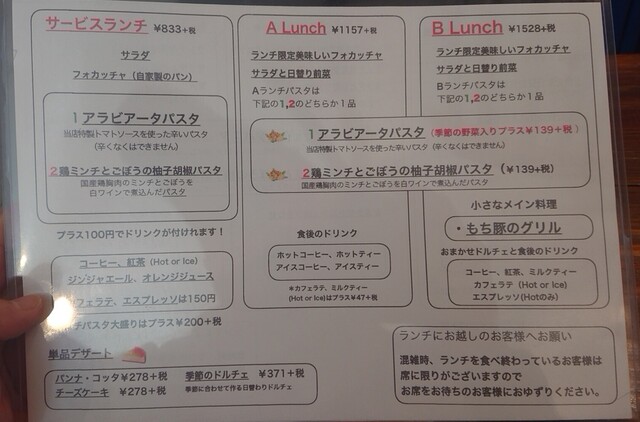 サービスランチ ¥833+税
サラダ
フォカッチャ（自家製のパン）
1 アラビアータパスタ
当店特製トマトソースを使った辛いパスタ
（辛くなくはできません）
2鶏ミンチとごぼうの柚子胡椒パスタ
国産鶏胸肉のミンチとごぼうを
白ワインで煮込んだパスタ
プラス100円でドリンクが付けれます！
コーヒー、紅茶（Hot or Ice）
ジンジャエール、オレンジジュース
フェラテ、エスプレッソは150円
パスタ大盛りはプラス¥200+税
単品デザート
パンナ・コッタ¥278+税
チーズケーキ ¥278+税
季節のドルチェ ¥371+税
季節に合わせて作る日替わりドルチェ
A Lunch ¥1157+税
ランチ限定美味しいフォカッチャ
サラダと日替り前菜
Aランチパスタは
下記の1,2のどちらか1品
B Lunch ¥1528+税
ランチ限定美味しいフォカッチャ
サラダと日替り前菜
Bランチパスタは
下記の1,2のどちらか1品
1 アラビアータパスタ（季節の野菜入りプラス¥139+税）
当店特製トマトソースを使った辛いパスタ（辛くなくはできません）
2鶏ミンチとごぼうの柚子胡椒パスタ（¥139+税）
国産鶏胸肉のミンチとごぼうを白ワインで煮込んだパスタ
食後のドリンク
ホットコーヒー、ホットティー
アイスコーヒー、アイスティー
＊カフェラテ、ミルクティー
(Hot or Ice)はプラス¥47+税
小さなメイン料理
・もち豚のグリル
おまかせドルチェと食後のドリンク
コーヒー、紅茶、ミルクティー
カフェラテ（Hot or Ice）
エスプレッソ(Hotのみ)
ランチにお越しのお客様へお願い
混雑時、ランチを食べ終わっているお客様は
席に限りがございますので
お席をお待ちのお客様におゆずりください。